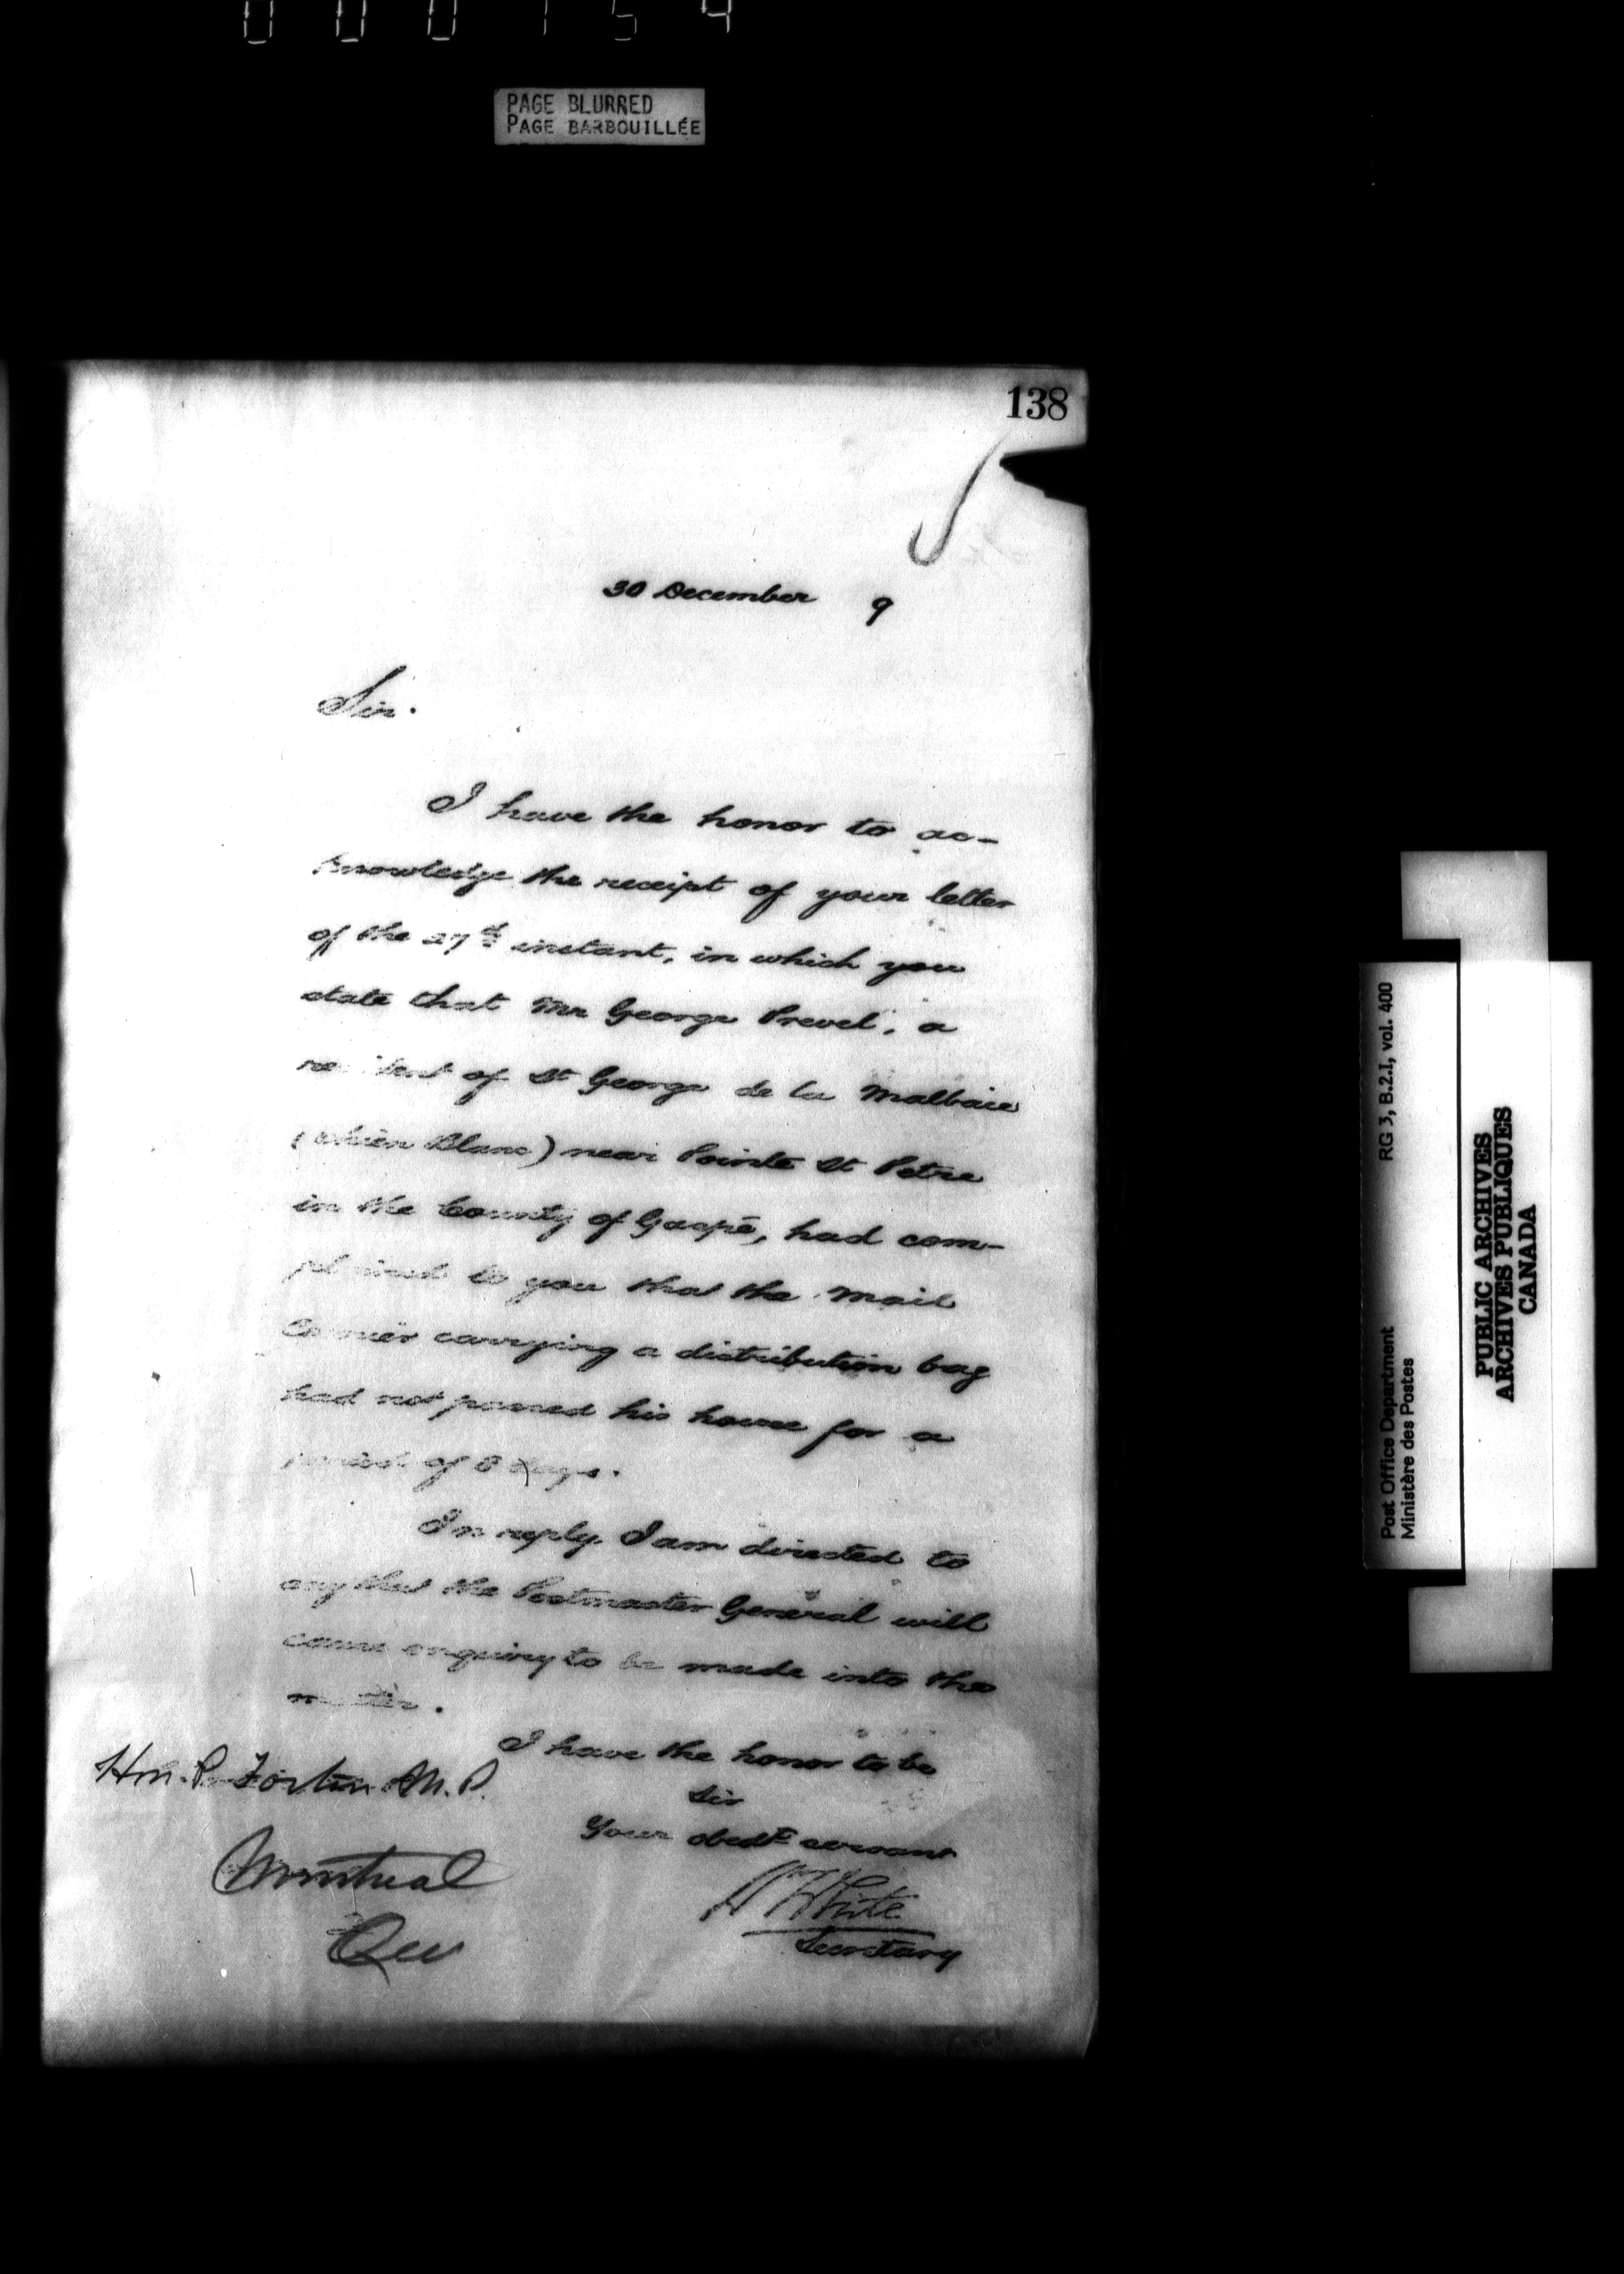 000154
PAGE BLURRED
PAGE BARBOUILLÉE
138
30 December 9
Sir.
I have the honor to ac-
knowledge the receipt of your letter
of the 27th instant, in which you
state that Mr George Prevel, a
resident of St George de la Malbaie
(Chien Blanc) near Pointe St Petre
in the County of Gaspé, had com-
plained to you that the Mail
Courier carrying a distribution bag
had not passed his house for a
period of 8 days.
In reply I am directed to
say that the Postmaster General will
cause enquiry to be made into the
matter.
I have the honor to be
Sir
Your obedt servant
W White
Secretary
Hon. P. Fortin M.P.
Montreal
Que
RG 3, B.2.I, vol. 400
Post Office Department
Ministère des Postes
PUBLIC ARCHIVES
ARCHIVES PUBLIQUES
CANADA